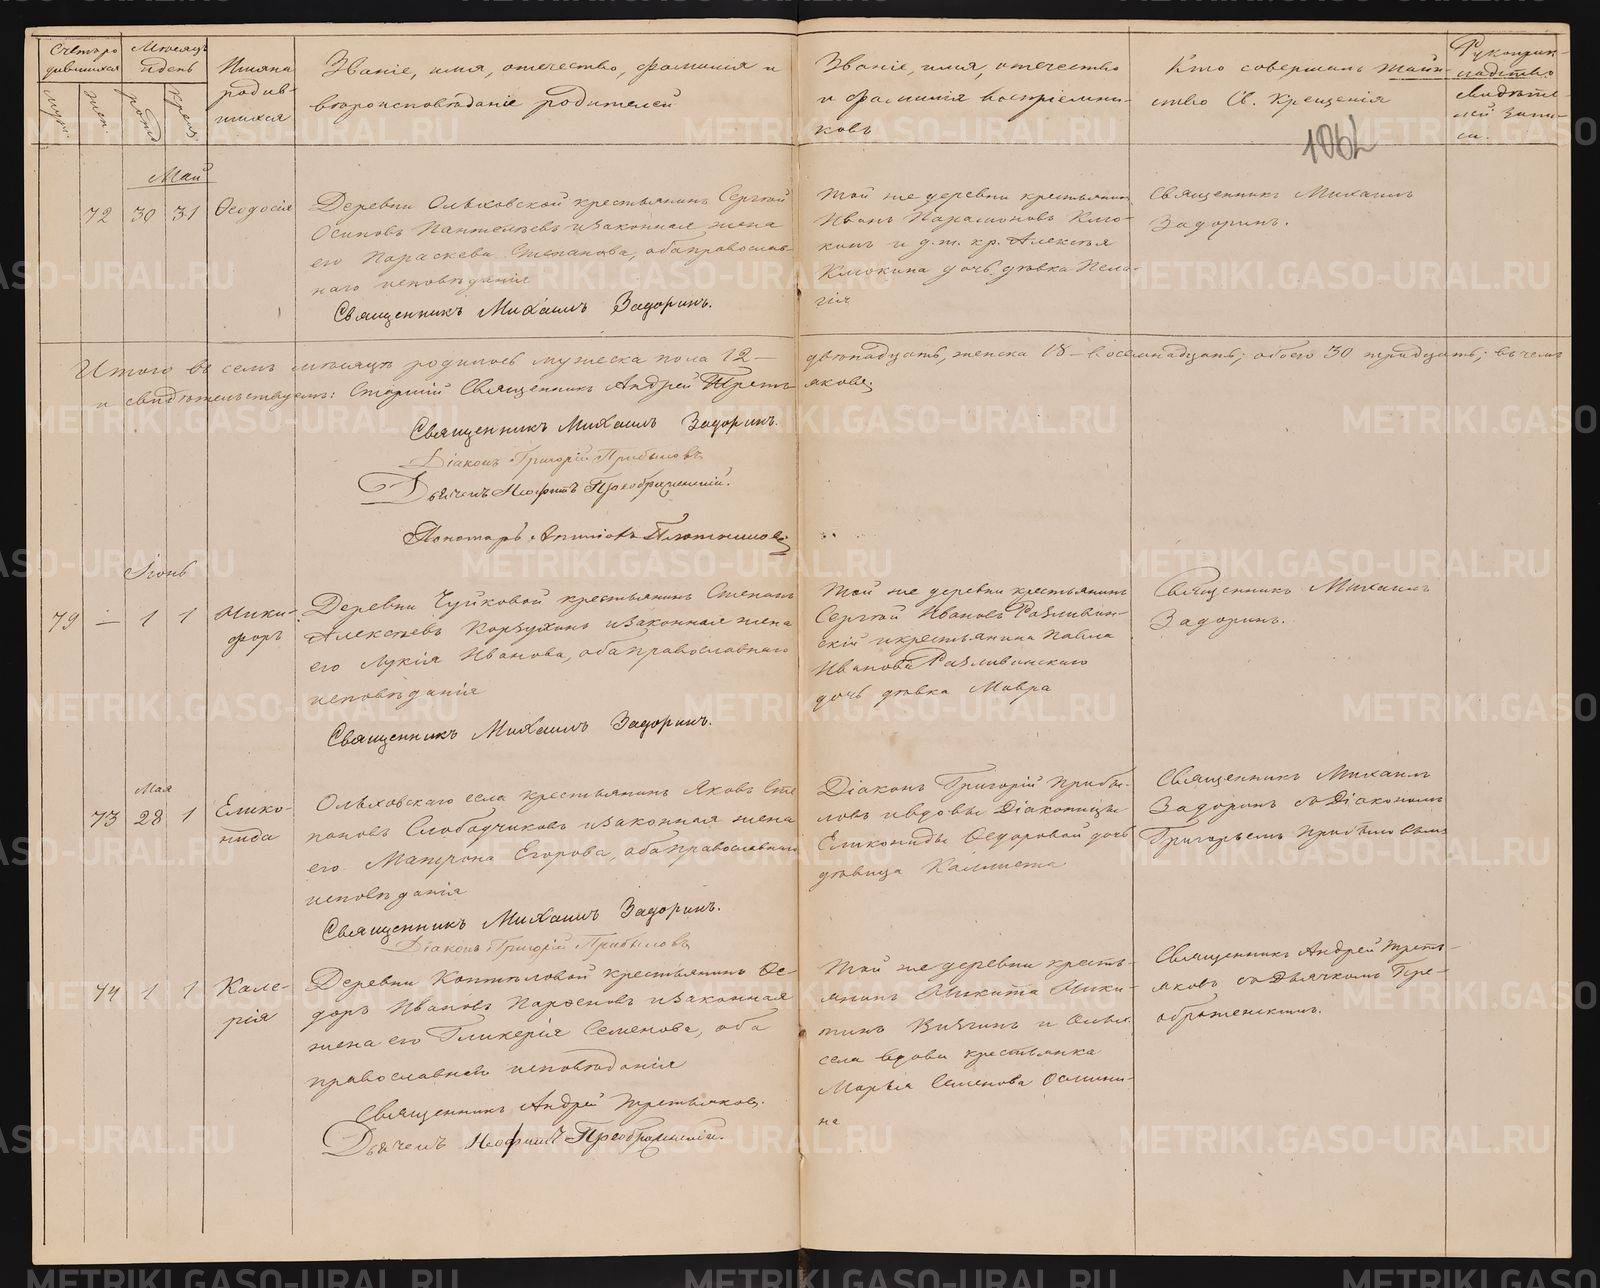 Счетъ ро
дившихся
Мѣсяцъ
и день
Имяна
родив-
шихся
муж.
жен.
рожд
крещ
Званіе, имя, отечество, фамилія и
вѣроисповѣданіе родителей
Званіе, имя, отечество
и фамилія воспріемни-
ковъ
Кто совершалъ таин-
ство Св. Крещенія
Рукоприк-
ладство
свидѣте-
лей запи-
си.
Май
72 30 31 Ѳеодосія
Деревни Ольховской крестьянинъ Сергѣй
Осиповъ Пантелѣевъ и законная жена
его Параскева Степанова, оба православ-
наго исповѣданія
Священникъ Михаилъ Задоринъ.
Той же деревни крестьянинъ
Иванъ Парамоновъ Клю-
кинъ и д. т. кр. Алексѣя
Клюкина дочь дѣвка Пела-
гія
Священникъ Михаилъ
Задоринъ.
Итого въ семъ мѣсяцѣ родилось мужеска пола 12 – двѣнадцать, женска 18 – восемнадцать; обоего 30 тридцать; въ чемъ
и свидѣтельствуемъ: Старшій Священникъ Андрей Третьяковъ
Священникъ Михаилъ Задоринъ.
Діаконъ Григорій Прибыловъ
Дьячекъ Неофитъ Преображенскій.
Пономарь Плотниковъ
Іюнь
79 – 1 1 Ники-
форъ
Деревни Чуйковой крестьянинъ Степанъ
Алексѣевъ Корзухинъ и законная жена
его Лукія Иванова, оба православнаго
исповѣданія
Священникъ Михаилъ Задоринъ.
Той же деревни крестьянинъ
Сергѣй Ивановъ Разливин-
скій и крестьянина Павла
Иванова Разливинскаго
дочь дѣвка Мавра
Священникъ Михаилъ
Задоринъ.
Мая
73 28 1 Елико-
нида
Ольховскаго села крестьянинъ Яковъ Сте
пановъ Слободчиковъ и законная жена
его Матрона Егорова, оба православнаго
исповѣданія
Священникъ Михаилъ Задоринъ.
Діаконъ Григорій Прибыловъ
Діаконъ Григорій Прибы-
ловъ и вдовы Діаконицы
Еликониды Ѳедоровой дочь
дѣвица Каллиста
Священникъ Михаилъ
Задоринъ съ Діакономъ
Григорьемъ Прибыловымъ
74 1 1 Кале-
рія
Деревни Коптѣловой крестьянинъ Ѳе-
доръ Ивановъ Парѳеновъ и законная
жена его Гликерія Семенова, оба
православнаго исповѣданія
Священникъ Андрей Третьяковъ.
Дьячекъ Неофитъ Преображенскій.
Той же деревни кресть-
янинъ Никита Ники-
тинъ и Ольх.
села вдова крестьянка
Марѳа Семенова Осинни-
на
Священникъ Андрей Треть-
яковъ съ Дьячкомъ Пре-
ображенскимъ.
METRIKI.GASO-URAL.RU